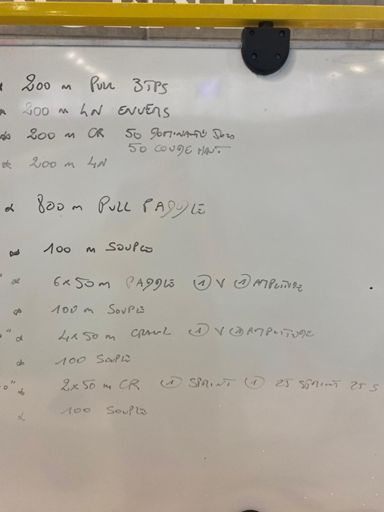 200 m PULL 3TPS
200 m 4N ENVERS
200 m CR 50 DOMINANTE
50 COUDE HAUT.
200 m 4N
800 m PULL PADDLE
100 m SOUPLE
6x50m PADDLE ① V ① AMPLITUDE
100 m SOUPLE
4x50m CRAWL ① V ① AMPLITUDE
100 SOUPLE
2x50 m CR ① SPRINT ① 25 SPRINT 25 S
100 SOUPLE